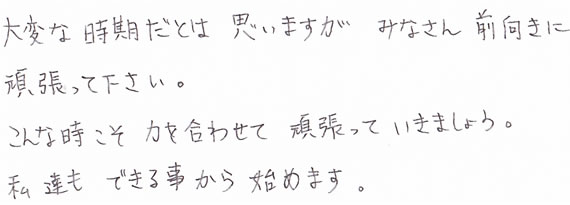 大変な時期だとは思いますが みなさん前向きに
頑張って下さい。
こんな時こそ力を合わせて頑張っていきましょう。
私達もできる事から始めます。